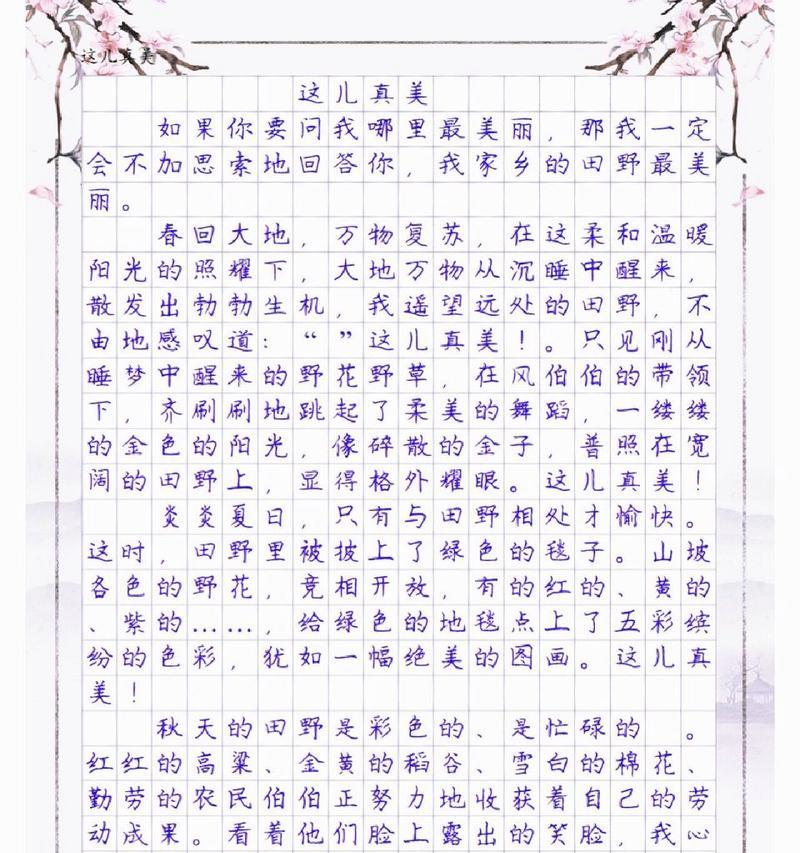 这儿真美
这儿真美
如果你要问我哪里最美丽，那我一定
会不加思索地回答你，我家乡的田野最美
丽。
春回大地，万物复苏，在这柔和温暖
阳光的照耀下，大地万物从沉睡中醒来，
散发出勃勃生机，我遥望远处的田野，不
由地感叹道：“”这儿真美！。只见刚从
睡梦中醒来的野花野草，在风伯伯的带领
下，齐刷刷地跳起了柔美的舞蹈，一缕缕
的金色的阳光，像碎散的金子，普照在宽
阔的田野上，显得格外耀眼。这儿真美！
炎炎夏日，只有与田野相处才愉快。
这时，田野里被披上了绿色的毯子。山坡
各色的野花，竞相开放，有的红的、黄的
、紫的……，给绿色的地毯点上了五彩缤
纷的色彩，犹如一幅绝美的图画。这儿真
美！
秋天的田野是彩色的、是忙碌的 。
红红的高粱、金黄的稻谷、雪白的棉花、
勤劳的农民伯伯正努力地收获着自己的劳
动成果。看着他们脸上露出的笑脸，我心